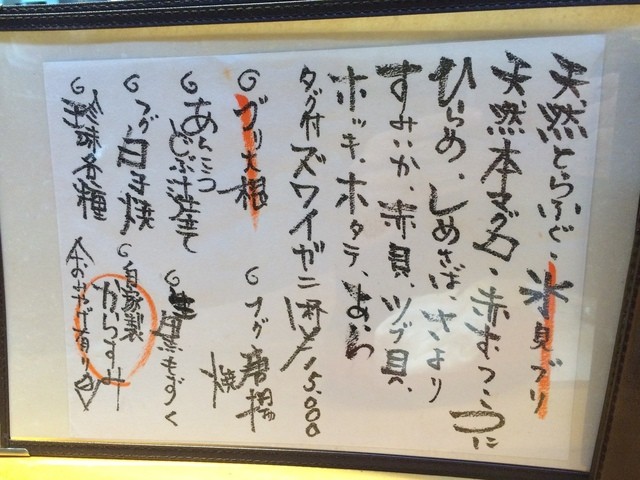 天然とらふぐ・氷見ブリ
天然本マグロ・赤むつ・うに
ひらめ、しめさば、さより
すみいか、赤貝、ツブ貝、
ホッキ、ホタテ、
タグ付ズワイガニ 15.000
ブリ大根
フグ唐揚
焼
あんこう
どぶ汁仕立て
生黒もずく
フグ白子焼
自家製
からすみ
珍味各種